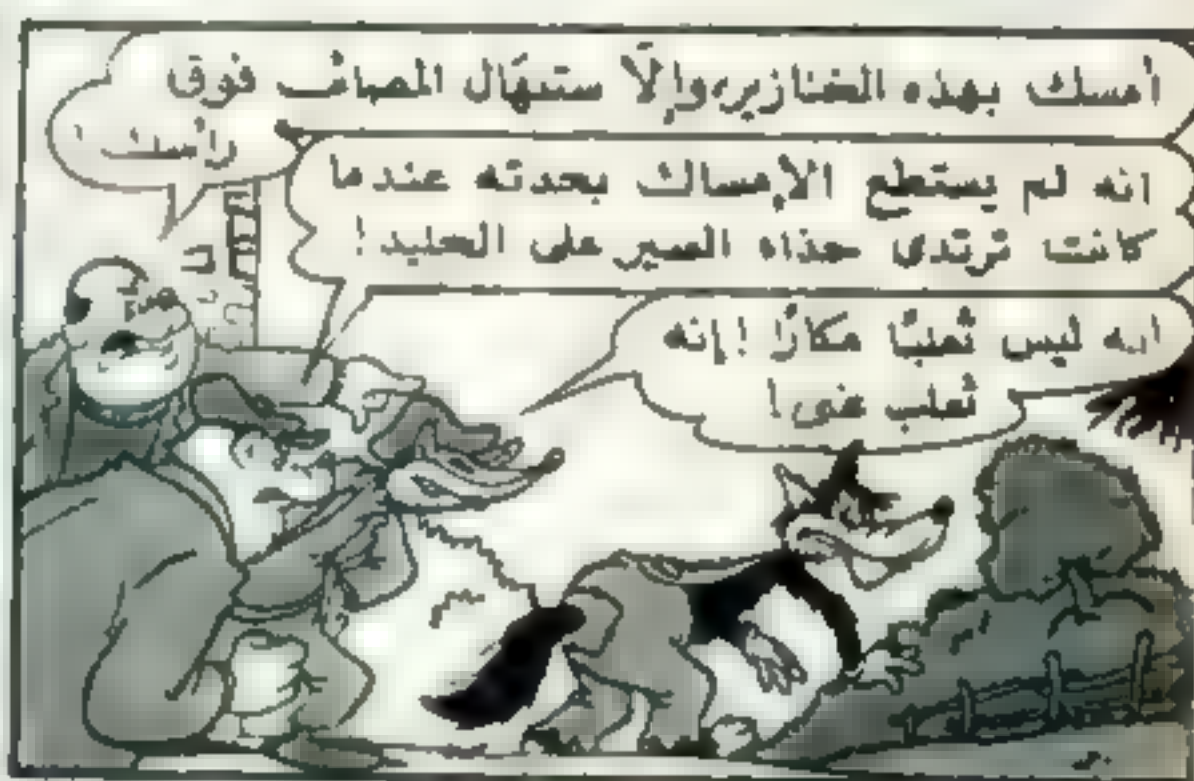 أمسك بهذه الخنازير، وإلّا ستنهال المصائب فوق
رأسك !
انه لم يستطع الإمساك بجدته عندما
كانت ترتدى حذاء السير على الجليد !
انه ليس ثعلبًا مكارًا ! إنه
ثعلب غبى !